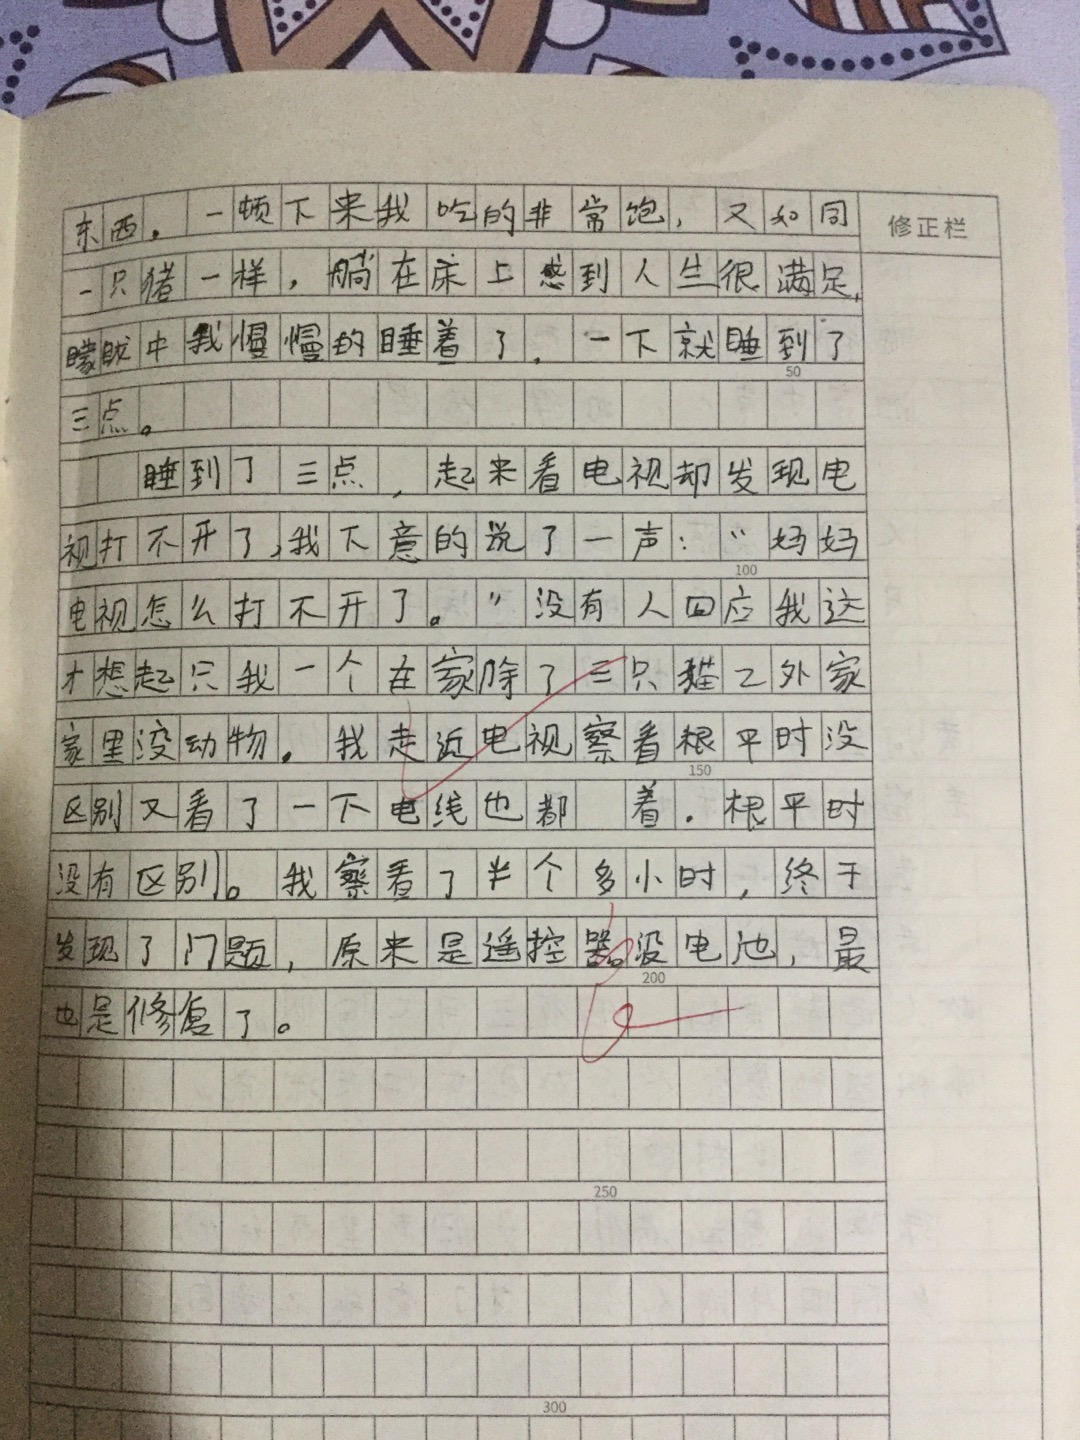 东西。一顿下来我吃的非常饱，又如同
修正栏
一只猪一样，躺在床上感到人生很满足，
朦胧中我慢慢的睡着了，一下就睡到了
50
三点。
睡到了三点，起来看电视却发现电
视打不开了，我下意的说了一声：“妈妈
100
电视怎么打不开了。”没有人回应我这
才想起只我一个在家除了三只猫之外家
家里没动物。我走近电视察看根平时没
150
区别又看了一下电线也都 着.根平时
没有区别。我察看了半个多小时，终于
发现了门题，原来是遥控器没电池，最
200
也是修复了。
250
300